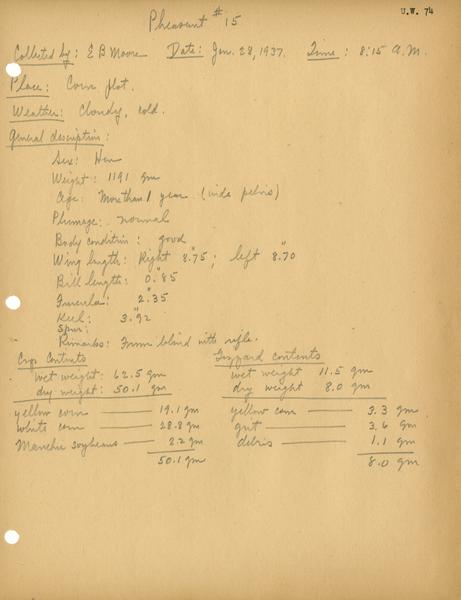 U.W. 74
Pheasant #15
Collected by: E B Moore Date: Jan. 28, 1937. Time: 8:15 A.M.
Place: Corn plot.
Weather: Cloudy, cold.
General description:
Sex: Hen
Weight: 1191 gm
Age: More than 1 year (wide pelvis)
Plumage: normal
Body condition: good
Wing length: Right 8."75; left 8."70
Bill length: 0."85
Furcula: 2."35
Keel: 3."92
Spur:
Remarks: From blind with rifle.
Crop Contents Gizzard contents
wet weight: 62.5 gm wet weight 11.5 gm
dry weight: 50.1 gm dry weight 8.0 gm
yellow corn — 19.1 gm yellow corn — 3.3 gm
white corn — 28.8 gm grit — 3.6 gm
Manchu soybeans — 2.2 gm debris — 1.1 gm
50.1 gm 8.0 gm